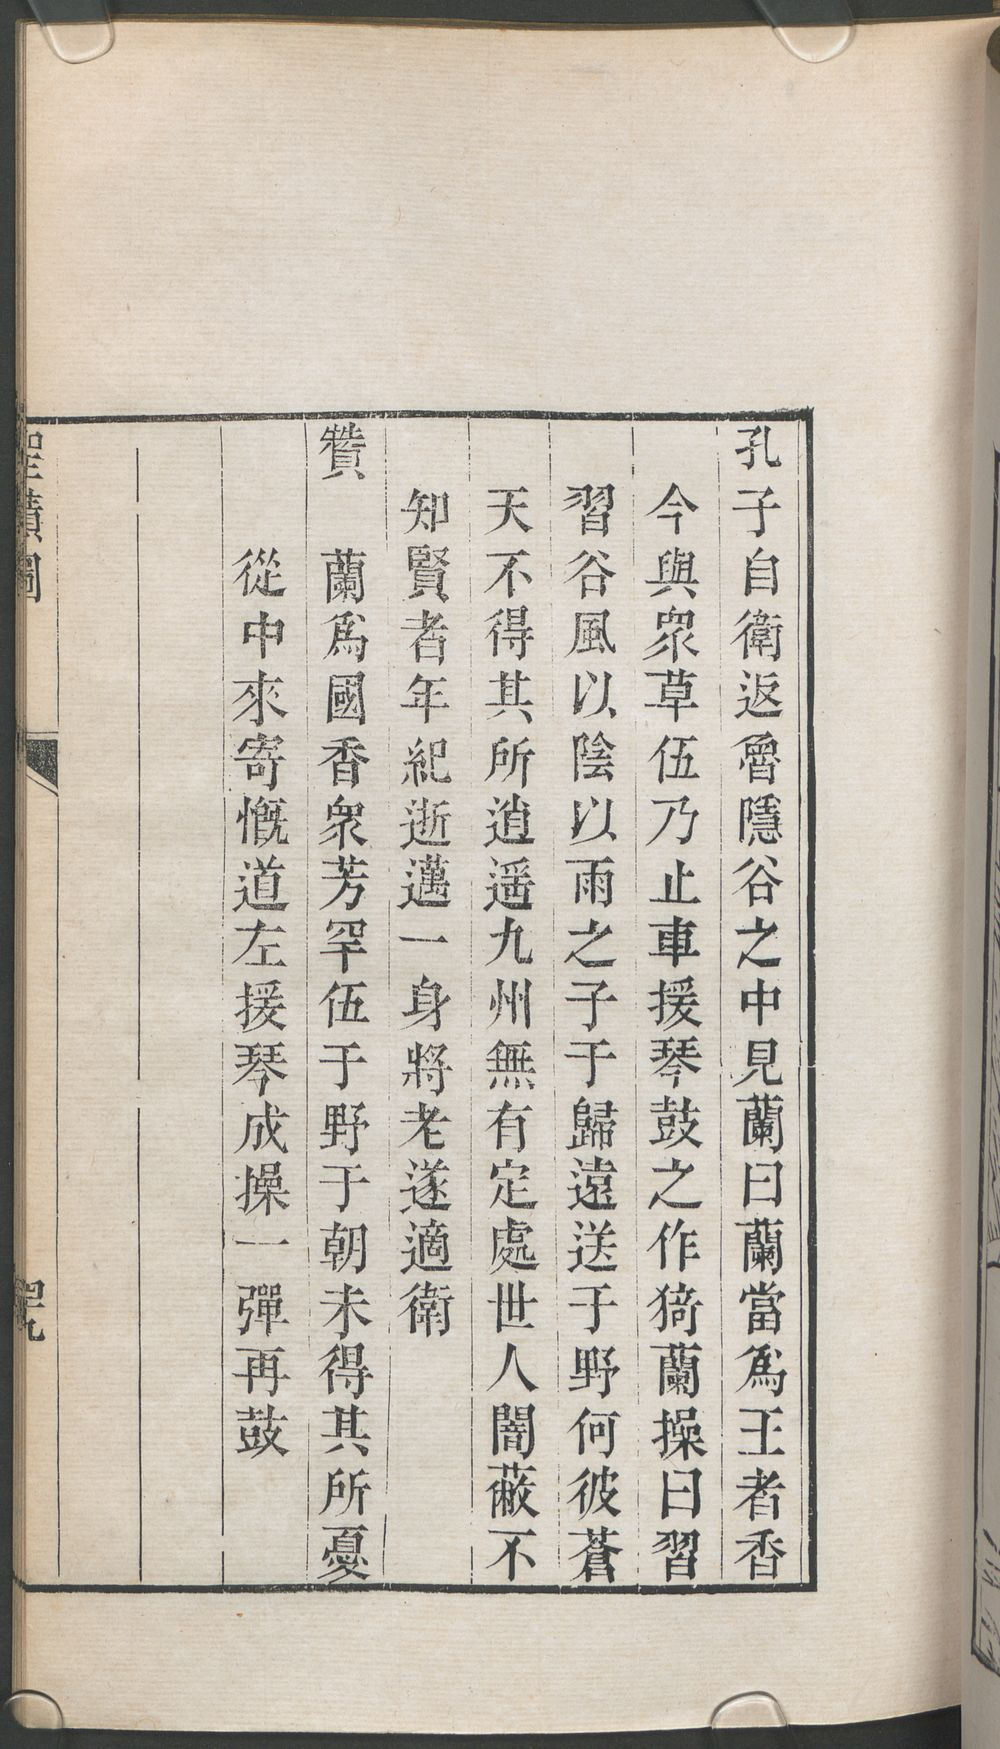 孔子自衛返魯隱谷之中見蘭曰蘭當爲王者香
今與衆草伍乃止車援琴鼓之作猗蘭操曰習
習谷風以陰以雨之子于歸遠送于野何彼蒼
天不得其所逍遥九州無有定處世人闇蔽不
知賢者年紀逝邁一身將老遂適衛
贊 蘭爲國香衆芳罕伍于野于朝未得其所憂
從中來寄慨道左援琴成操一彈再鼓
聖蹟圖